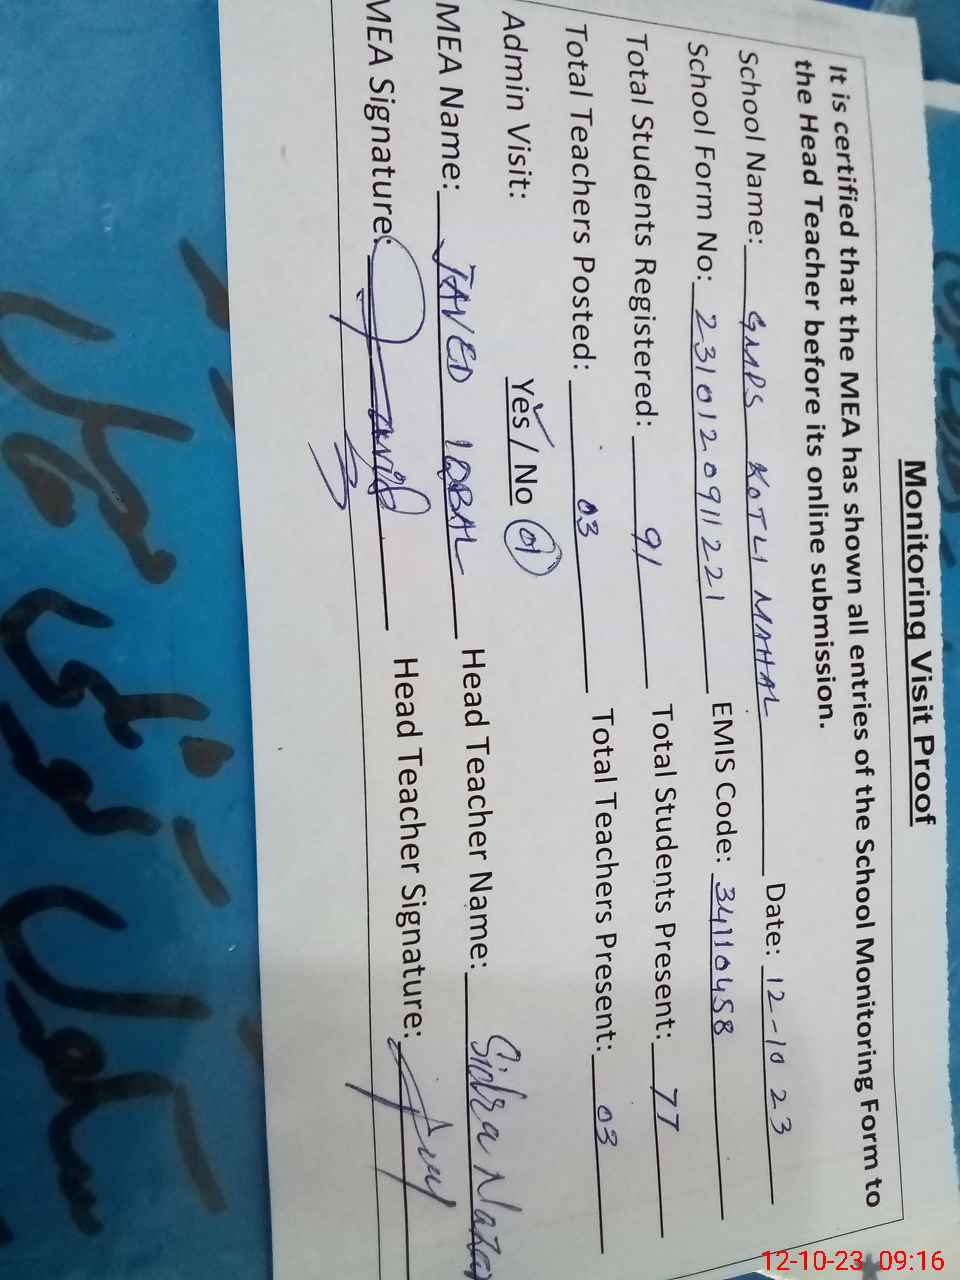 Monitoring Visit Proof
It is certified that the MEA has shown all entries of the School Monitoring Form to
the Head Teacher before its online submission.
School Name: GMPS KOTLI MAHAL Date: 12-10 23
School Form No: 2310120911221 EMIS Code: 34110458
Total Students Registered: 91 Total Students Present: 77
Total Teachers Posted: 03 Total Teachers Present: 03
Admin Visit: Yes / No 01
MEA Name: JAVED IQBAL Head Teacher Name: Sidra
MEA Signature: Head Teacher Signature:
12-10-23 09:16